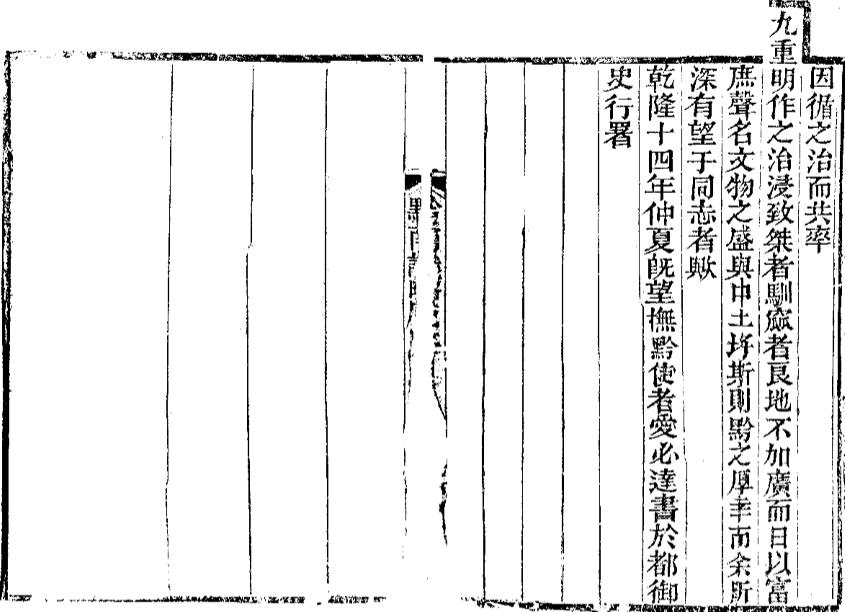 因循之治而共率
九重明作之治浸致桀者馴窳者良地不加廣而日以富
庶聲名文物之盛與中土埒斯則黔之厚幸而余所
深有望于同志者歟
乾隆十四年仲夏旣望撫黔使者愛必達書於都御
史行署
黔南識略